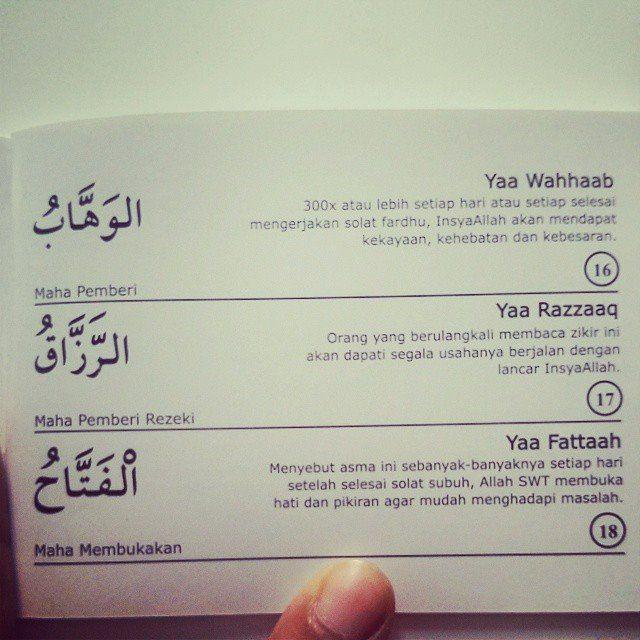 Yaa Wahhaab
الوَهَّابُ
300x atau lebih setiap hari atau setiap selesai
mengerjakan solat fardhu, InsyaAllah akan mendapat
kekayaan, kehebatan dan kebesaran.
16
Maha Pemberi
Yaa Razzaaq
الرَّزَّاقُ
Orang yang berulangkali membaca zikir ini
akan dapati segala usahanya berjalan dengan
lancar InsyaAllah.
17
Maha Pemberi Rezeki
Yaa Fattaah
الْفَتَّاحُ
Menyebut asma ini sebanyak-banyaknya setiap hari
setelah selesai solat subuh, Allah SWT membuka
hati dan pikiran agar mudah menghadapi masalah.
18
Maha Membukakan